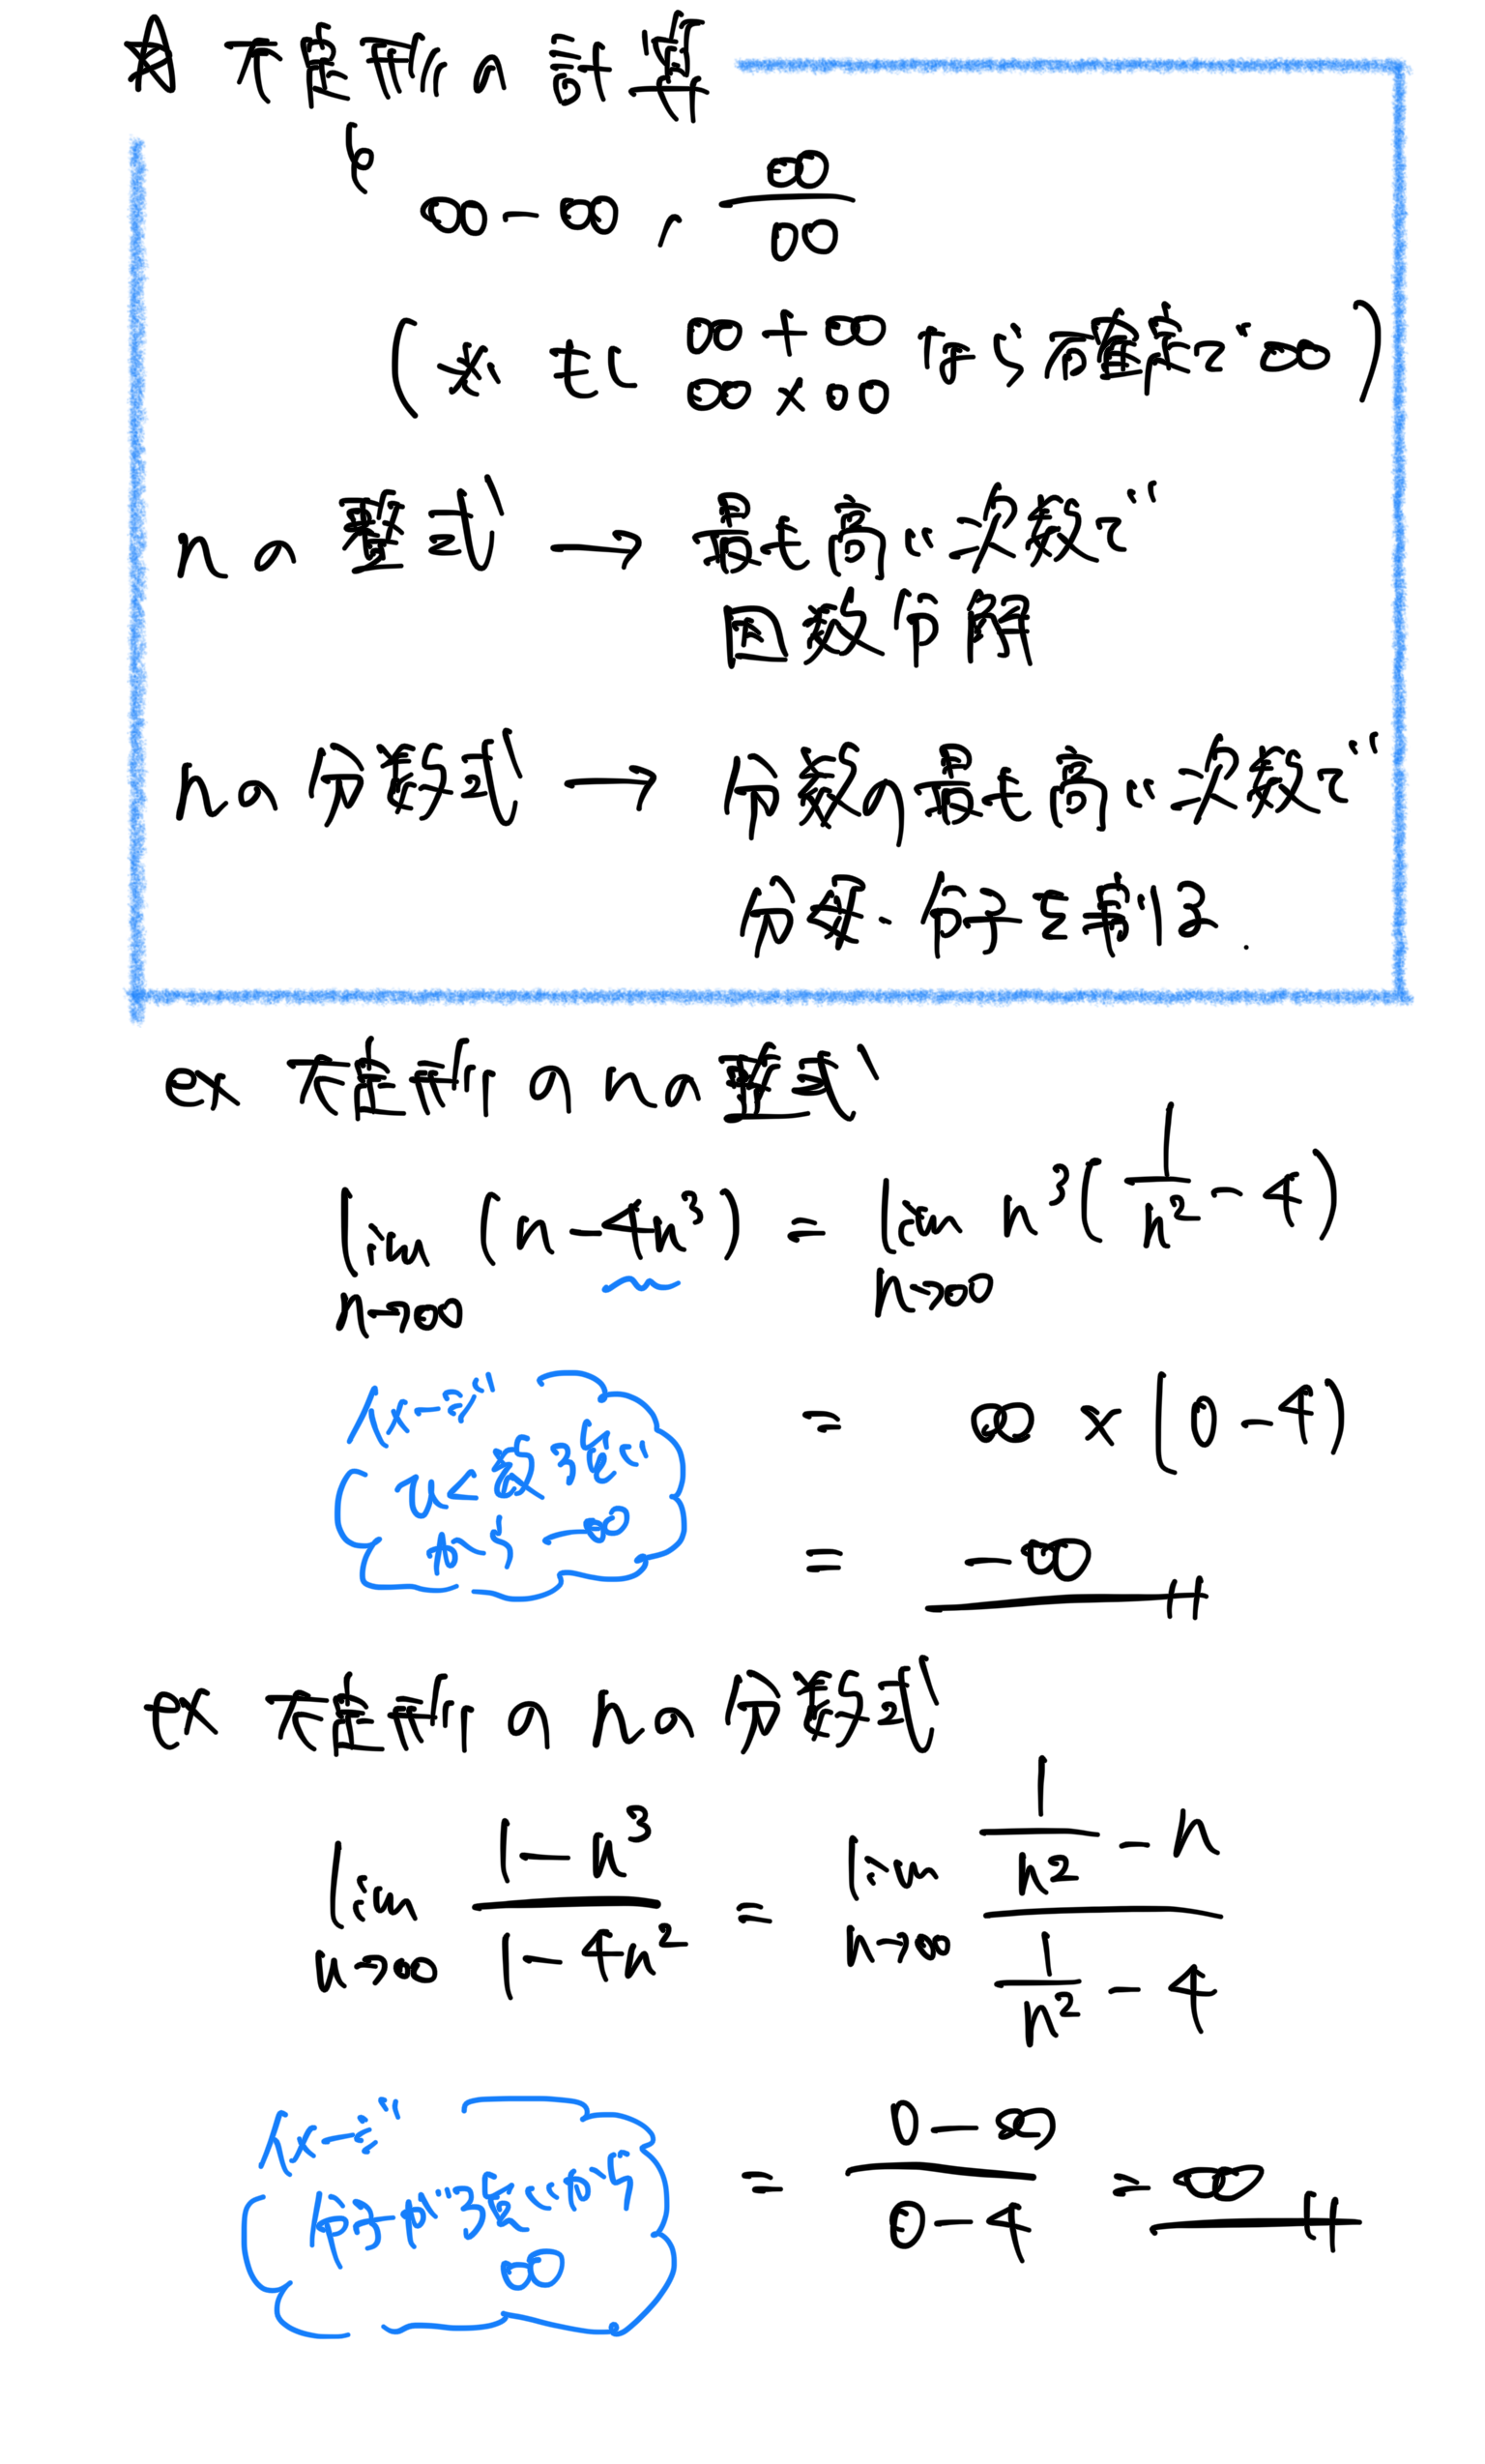 ☆ 不定形の計算
∞-∞, ∞/∞
(※ もし ∞+∞ ∞×∞ なら確定で∞)
nの整式 → 最も高い次数で
因数分解
nの分数式 → 分数の最も高い次数で
分母・分子を割る.
ex 不定形のnの整式
lim n→∞ (n-4n³) = lim n→∞ n³(1/n² - 4)
イメージ
= ∞ × (0-4)
引く数強い
から -∞
= -∞
ex 不定形のnの分数式
lim n→∞ (1-n³)/(1-4n²) = lim n→∞ (1/n² - n)/(1/n² - 4)
イメージ
= (0-∞)/(0-4) = ∞
分子が強いから
∞